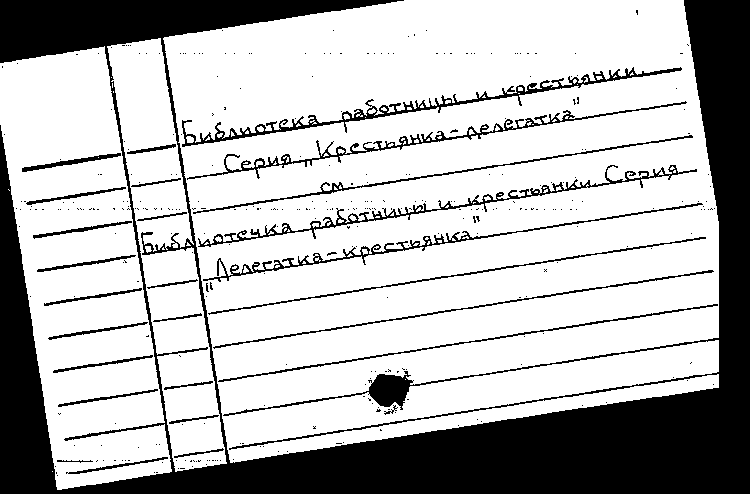 Библиотека работницы и крестьянки.
Серия „Крестьянка-делегатка"
см.
Библиотечка работницы и крестьянки. Серия
„Делегатка-крестьянка".